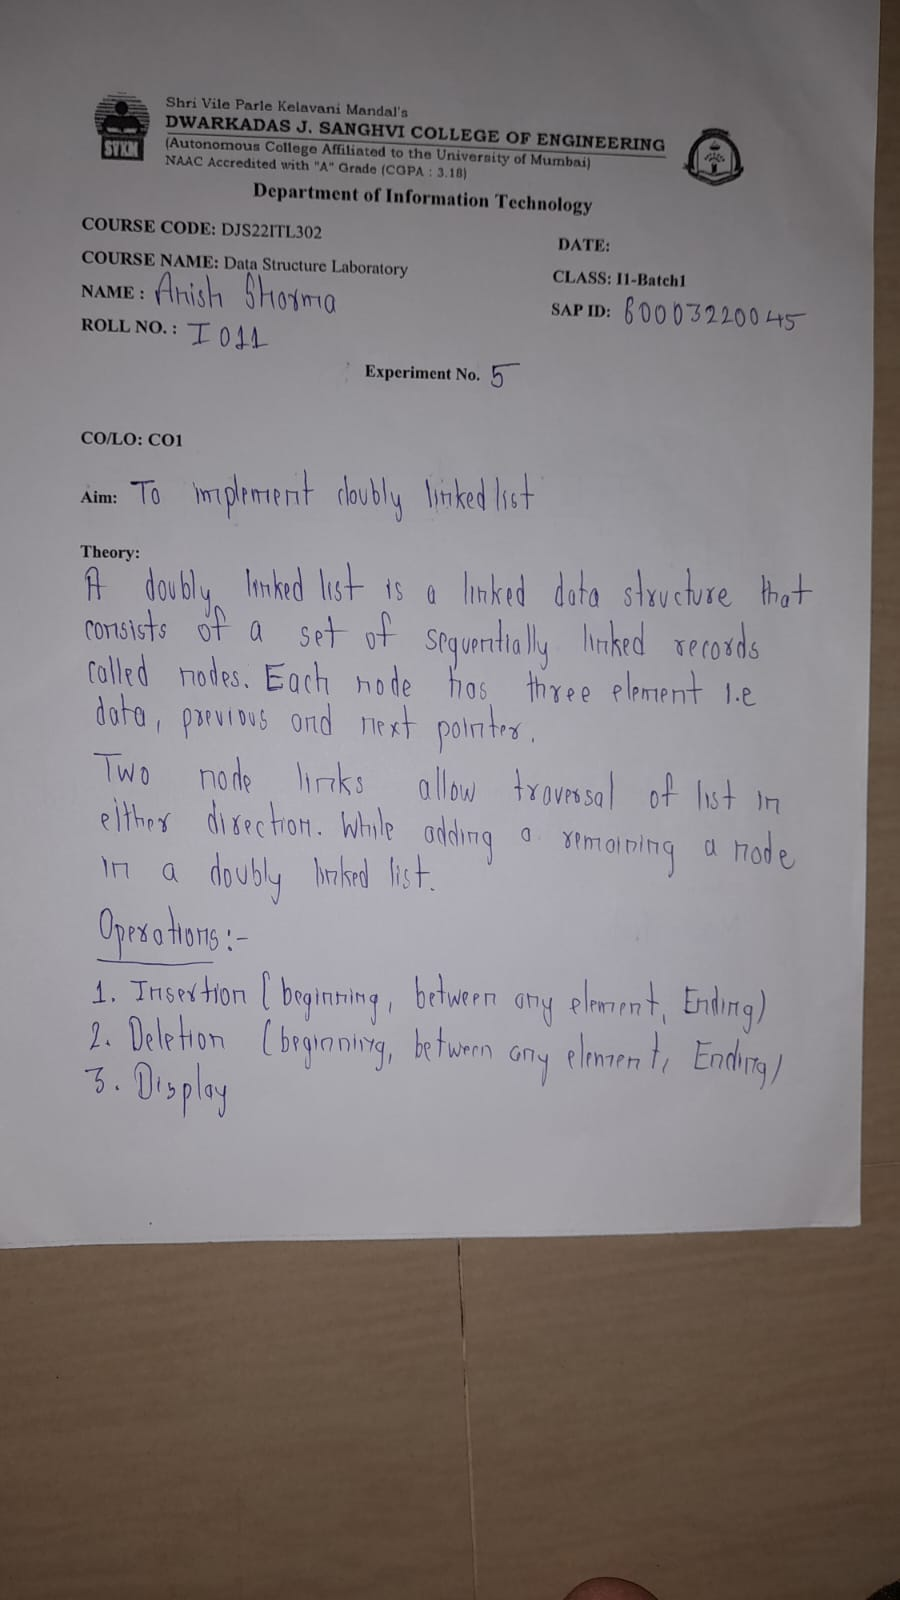 Shri Vile Parle Kelavani Mandal's
DWARKADAS J. SANGHVI COLLEGE OF ENGINEERING
(Autonomous College Affiliated to the University of Mumbai)
NAAC Accredited with "A" Grade (CGPA : 3.18)
SVKM
Department of Information Technology
COURSE CODE: DJS22ITL302
DATE:
COURSE NAME: Data Structure Laboratory
CLASS: I1-Batch1
NAME : Anish Sharma
SAP ID: 60003220045
ROLL NO. : I011
Experiment No. 5
CO/LO: CO1
Aim: To implement doubly linked list
Theory:
A doubly linked list is a linked data structure that
consists of a set of sequentially linked records
called nodes. Each node has three element i.e
data, previous and next pointer.
Two node links allow traversal of list in
either direction. While adding a remaining a node
in a doubly linked list.
Operations :-
1. Insertion (beginning, between any element, Ending)
2. Deletion (beginning, between any element, Ending)
3. Display